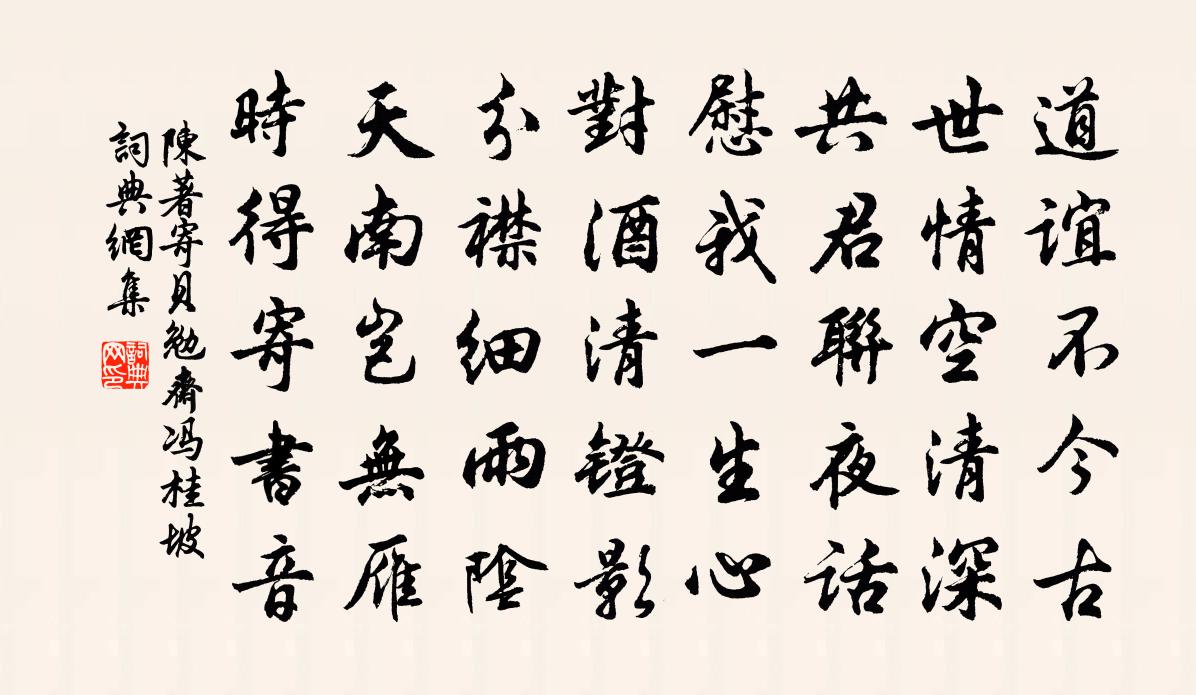 道誼不今古
世情空清深
共君聯夜話
慰我一生心
對酒清鐙影
分襟細雨陰
天南豈無雁
時得寄書音
陳著寄貝勉齋冯桂坡
詞典網集
詞典
网印